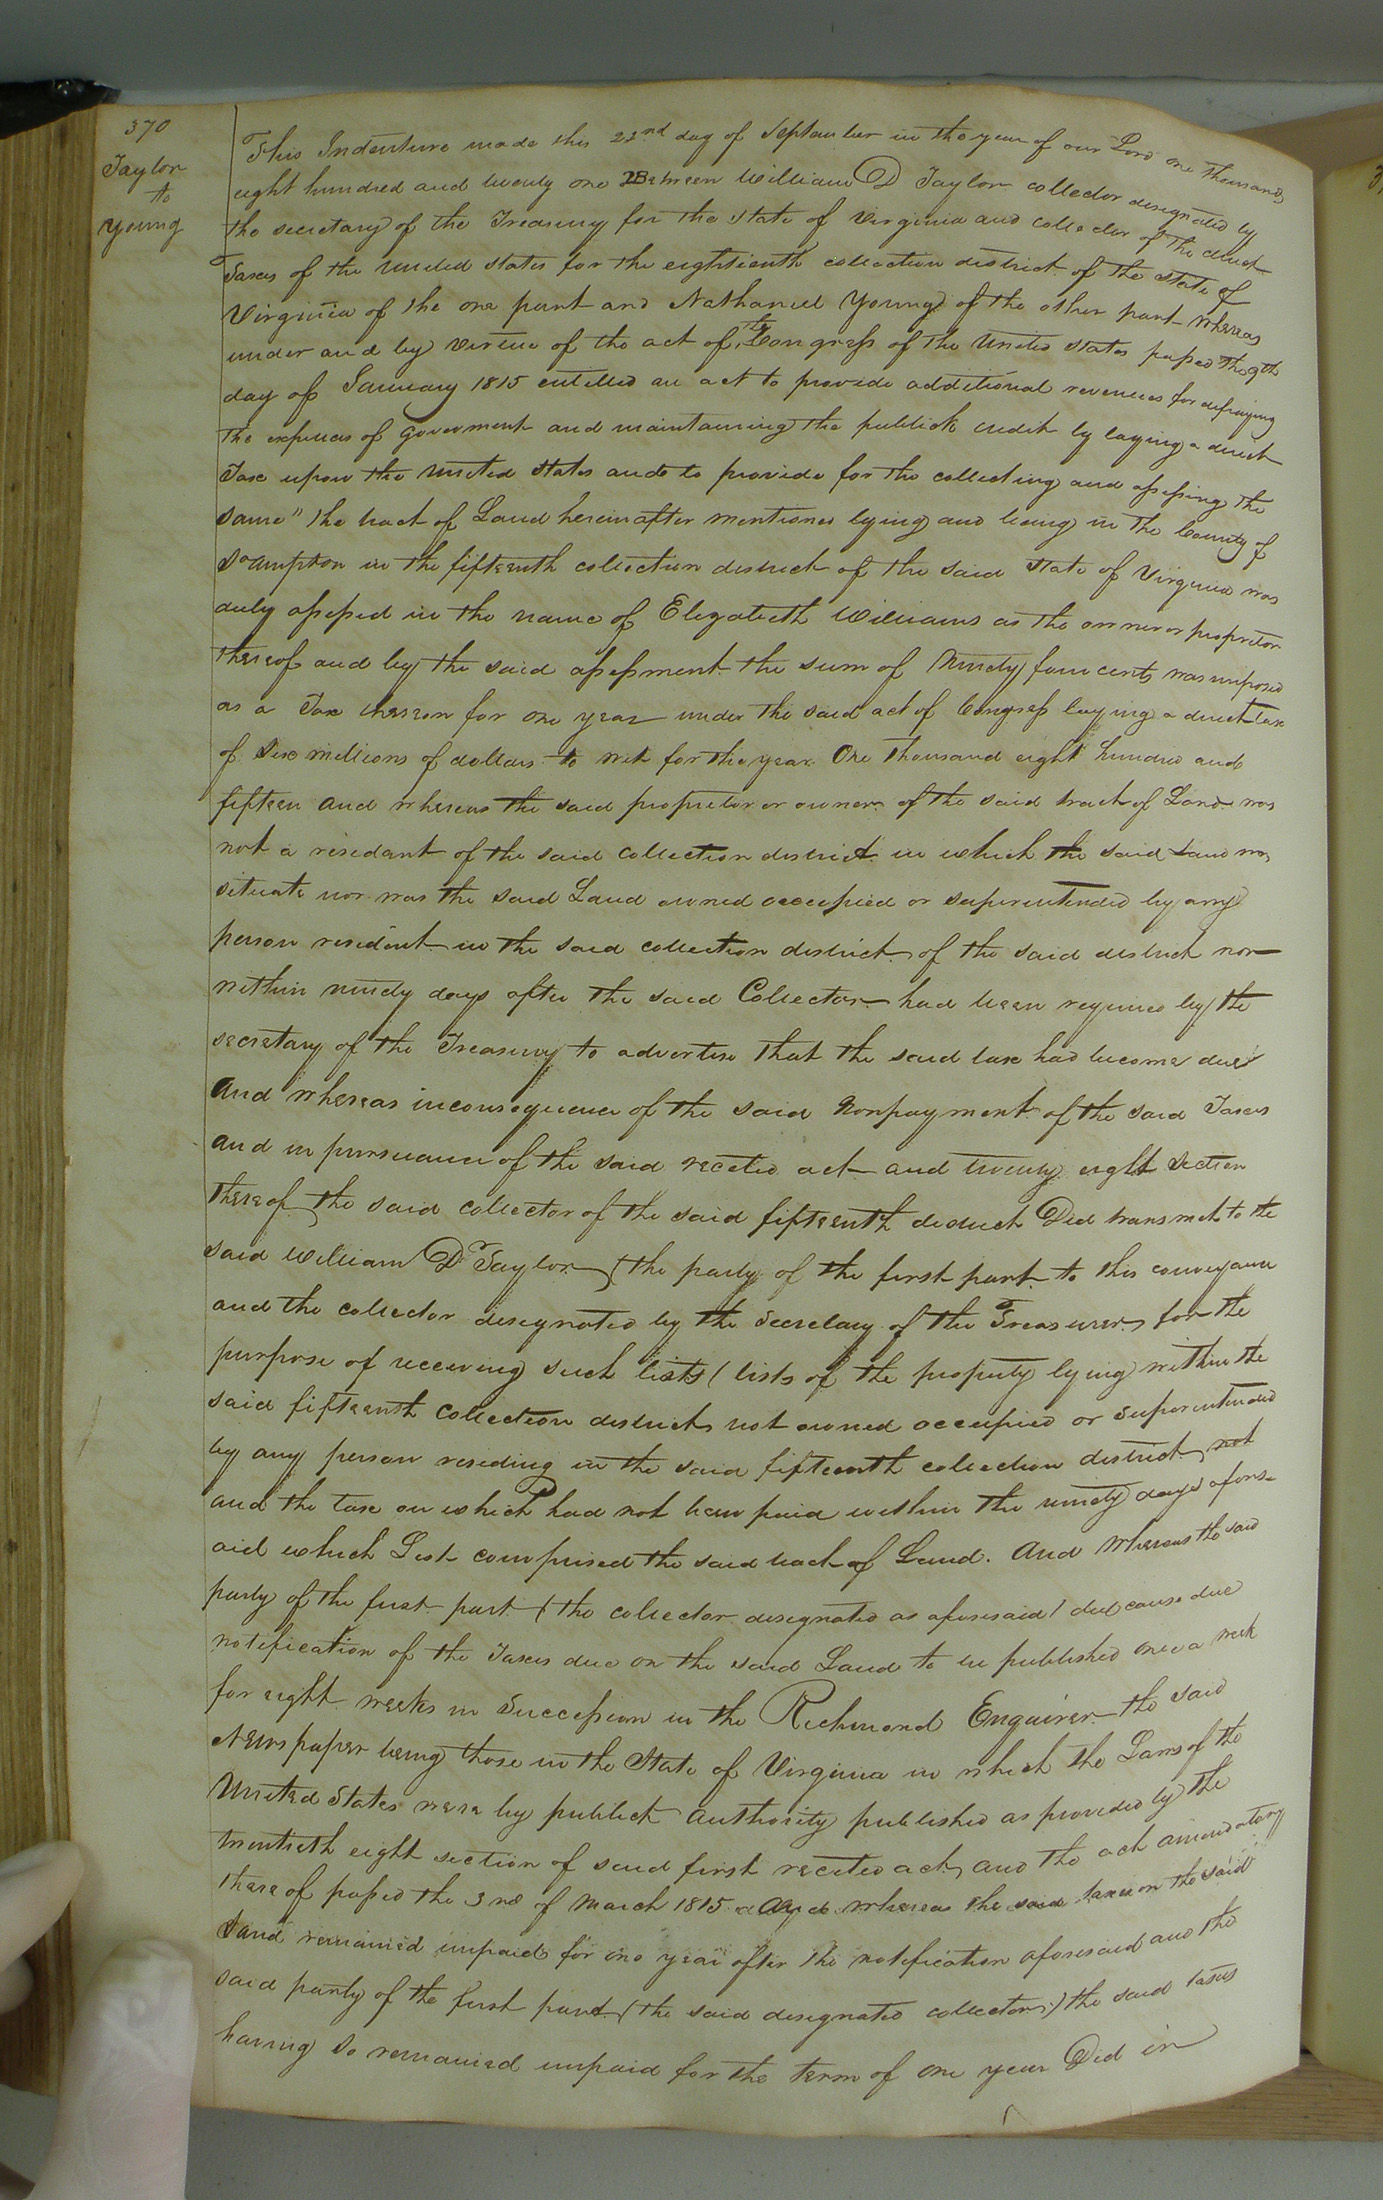 370
Taylor
to
Young
This Indenture made this 22nd day of September in the year of our Lord one thousand
eight hundred and twenty one Between William D Taylor collector designated by
the secretary of the Treasury for the state of Virginia and collector of the direct
Taxes of the united states for the eightienth collection district of the state of
Virginia of the one part and Nathaniel Young of the other part whereas
under and by virtue of the act of the Congress of the United States passed the 9th
day of January 1815 entitled an act to provide additional revenues for defraying
the expences of government and maintaining the publick credit by laying a direct
Tax upon the united states and to provide for the collecting and assessing the
same" the tract of Land hereinafter mentioned lying and being in the County of
Soampton in the fifteenth collection district of the said state of Virginia was
duly assessed in the name of Elizabeth Williams as the owner or proprietor
thereof and by the said assessment the sum of Ninety four cents was imposed
as a Tax thereon for one year under the said act of Congress laying a direct tax
of Six millions of dollars to wit for the year One thousand eight hundred and
fifteen and whereas the said proprietor or owner of the said tract of Land was
not a residant of the said collection district in which the said Land was
situate nor was the said Land owned occupied or superintended by any
person resident in the said collection district of the said district nor
within ninety days after the said Collector had been required by the
secretary of the Treasury to advertise that the said tax had become due
And whereas in consequence of the said Nonpayment of the said Taxes
and in pursuance of the said recited act and twenty eight section
thereof the said collector of the said fifteenth district Did transmit to the
said William D Taylor (the party of the first part to this conveyance
and the collector designated by the Secretary of the Treasurer for the
purpose of receiving such lists) lists of the property lying within the
said fifteenth collection district not owned occupied or superintended
by any person residing in the said fifteenth collection district not
and the tax on which had not been paid within the ninety days afores-
aid which List comprised the said tract of Land. And Whereas the said
party of the first part (the collector designated as aforesaid) did cause due
notification of the Taxes due on the said Land to be published once a week
for eight weeks in Succession in the Richmond Enquirer the said
Newspaper being those in the State of Virginia in which the Laws of the
United States were by publick authority published as provided by the
twentieth eight section of said first recited act, and the act amendatory
thereof passed the 3rd of March 1815 And whereas the said taxes on the said
Land remained unpaid for one year after the notification aforesaid and the
said party of the first part (the said designated collector) the said taxes
having so remained unpaid for the term of one year Did in